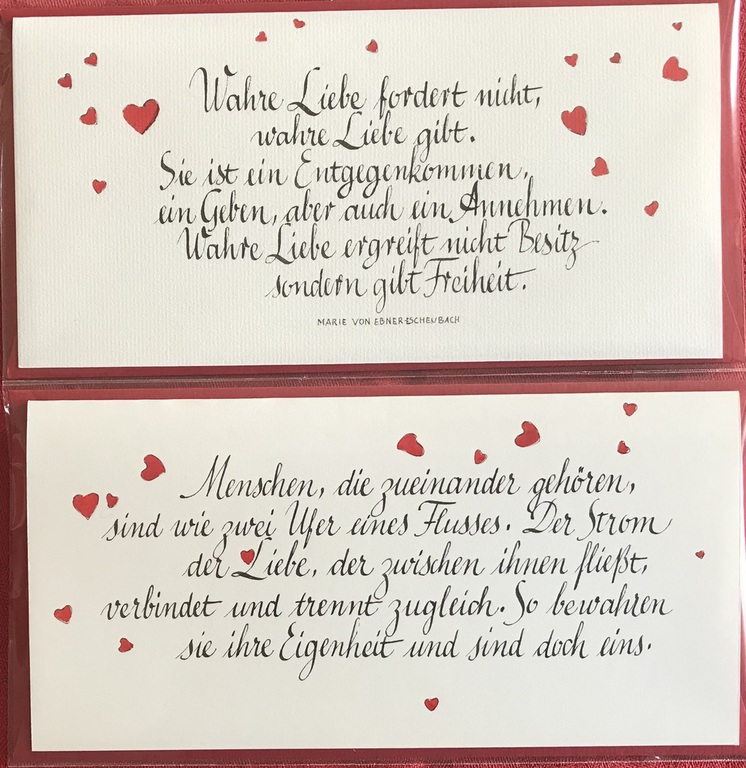 Wahre Liebe fordert nicht,
wahre Liebe gibt.
Sie ist ein Entgegenkommen,
ein Geben, aber auch ein Annehmen.
Wahre Liebe ergreift nicht Besitz
sondern gibt Freiheit.
MARIE VON EBNER-ESCHENBACH
Menschen, die zueinander gehören,
sind wie zwei Ufer eines Flusses. Der Strom
der Liebe, der zwischen ihnen fließt,
verbindet und trennt zugleich. So bewahren
sie ihre Eigenheit und sind doch eins.